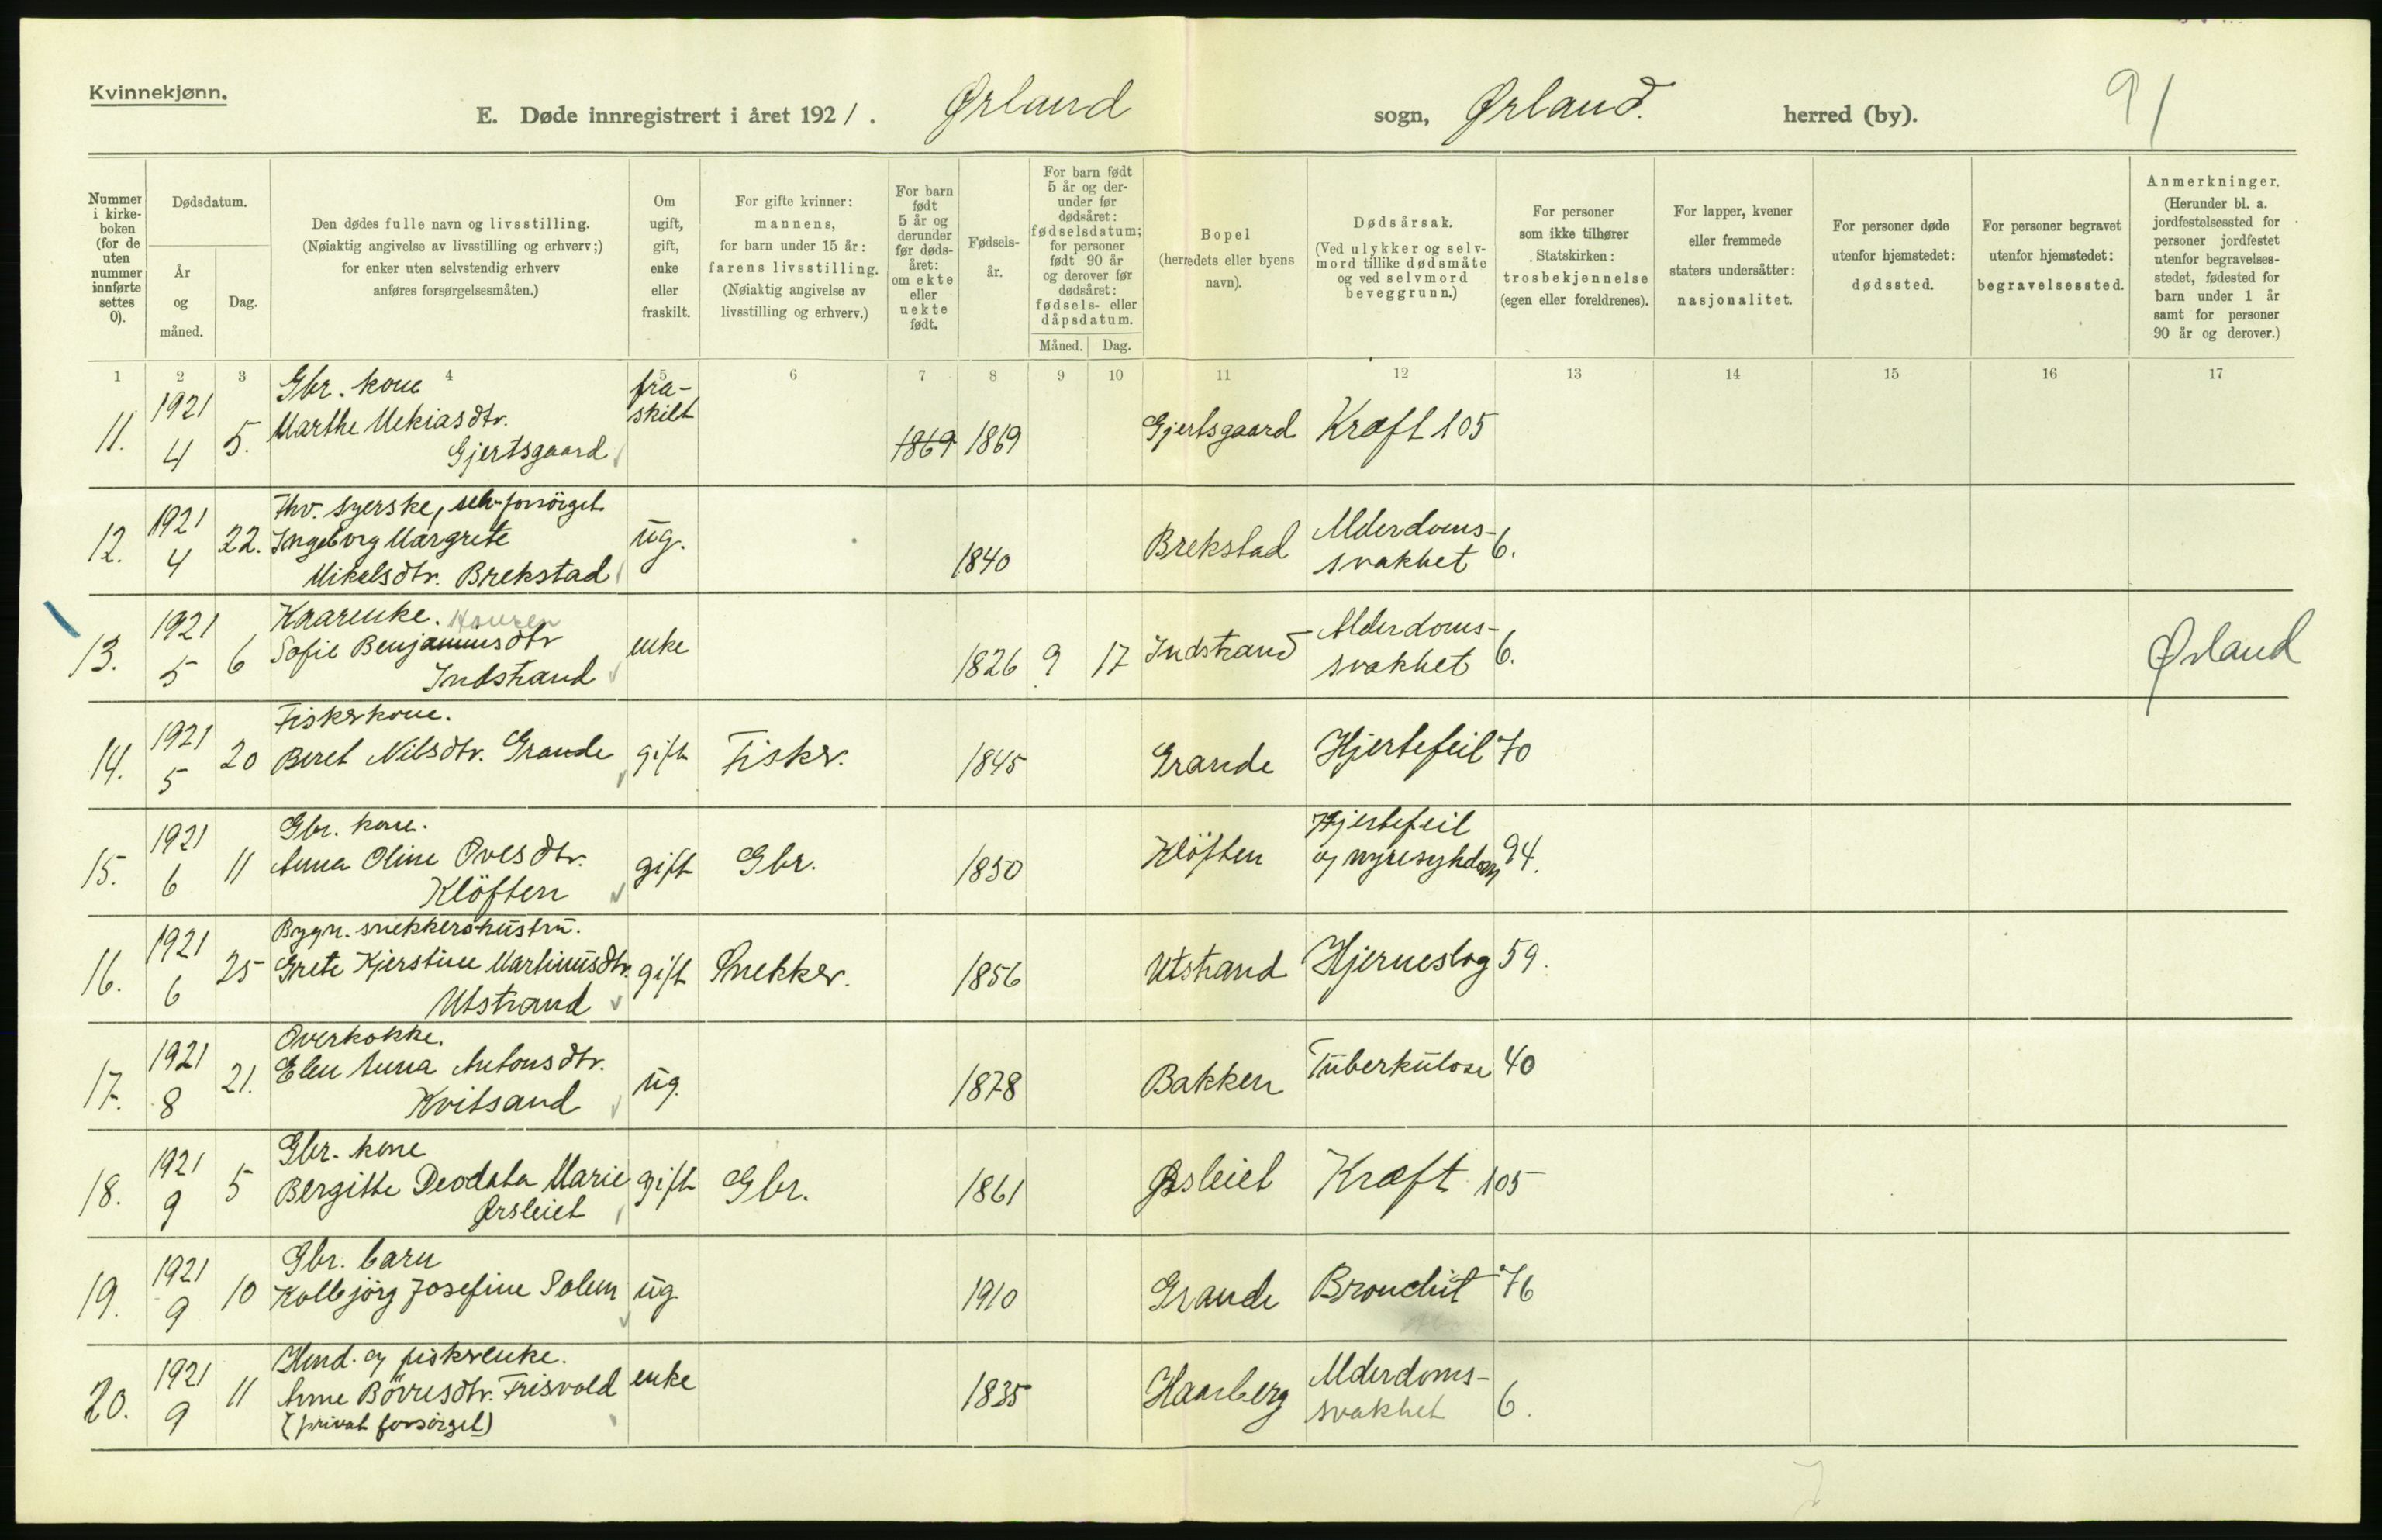 Kvinnekjønn.
E. Døde innregistrert i året 1921. Ørland sogn, Ørland. herred (by). 91
Nummer i kirke-boken (for de uten nummer innførte settes 0).
Dødsdatum.
År og måned.
Dag.
Den dødes fulle navn og livsstilling.
(Nøiaktig angivelse av livsstilling og erhverv;)
for enker uten selvstendig erhverv
anføres forsørgelsesmåten.)
Om ugift, gift, enke eller fraskilt.
For gifte kvinner:
mannens,
for barn under 15 år:
farens livsstilling.
(Nøiaktig angivelse av
livsstilling og erhverv.)
For barn født 5 år og derunder før døds-året: om ekte eller uekte født.
Fødsels-år.
For barn født 5 år og der-under før dødsåret: fødselsdatum; for personer født 90 år og derover før dødsåret: fødsels- eller dåpsdatum.
Måned. Dag.
Bopel
(herredets eller byens
navn).
Dødsårsak.
(Ved ulykker og selv-
mord tillike dødsmåte
og ved selvmord
beveggrunn.)
For personer
som ikke tilhører
Statskirken:
trosbekjennelse
(egen eller foreldrenes).
For lapper, kvener
eller fremmede
staters undersåtter:
nasjonalitet.
For personer døde
utenfor hjemstedet:
dødssted.
For personer begravet
utenfor hjemstedet:
begravelsessted.
Anmerkninger.
(Herunder bl. a.
jordfestelsessted for
personer jordfestet
utenfor begravelses-
stedet, fødested for
barn under 1 år
samt for personer
90 år og derover.)
1 2 3 4 5 6 7 8 9 10 11 12 13 14 15 16 17
11. 1921 4 5. Gbr. kone
Marthe Mekiasdtr.
Gjertsgaard
fra-
skilt
1869 1869 Gjertsgaard Kræft 105
12. 1921 4 22. Fhv. syerske, selv-forsörget
Ingeborg Margrete
Mikelsdtr. Brekstad
ug. 1840 Brekstad Alderdoms-
svakhet 6.
13. 1921 5 6 Kaarenke. Hauren
Sofie Benjaminsdtr
Indstrand
enke 1826 9 17 Indstrand Alderdoms-
svakhet 6. Ørland
14. 1921 5 20 Fiskerkone.
Beret Nilsdtr. Grande gift Fisker. 1845 Grande Hjertefeil 70
15. 1921 6 11 Gbr. kone.
Anna Oline Ovesdtr.
Klöften
gift Gbr. 1850 Klöften Hjertefeil
og nyresykdom 94.
16. 1921 6 25 Bygn. snekkershustru.
Grete Kjerstine Martinusdtr.
Utstrand
gift Snekker. 1856 Utstrand Hjerneslag 59.
17. 1921 8 21. Overkokke.
Elen Anna Antonsdtr.
Kvitsand
ug. 1878 Bakken Tuberkulose 40
18. 1921 9 5 Gbr. kone
Bergitte Deodata Marie
Ørsleiet
gift Gbr. 1861 Ørsleiet Kræft 105
19. 1921 9 10 Gbr. barn
Kolbjörg Josefine Solem ug 1910 Grande Bronchit 76
20. 1921 9 11 Hmd. og fiskerenke.
Anne Börresdtr. Frisvold
(privat forsörget)
enke 1835 Haarberg Alderdoms-
svakhet 6.